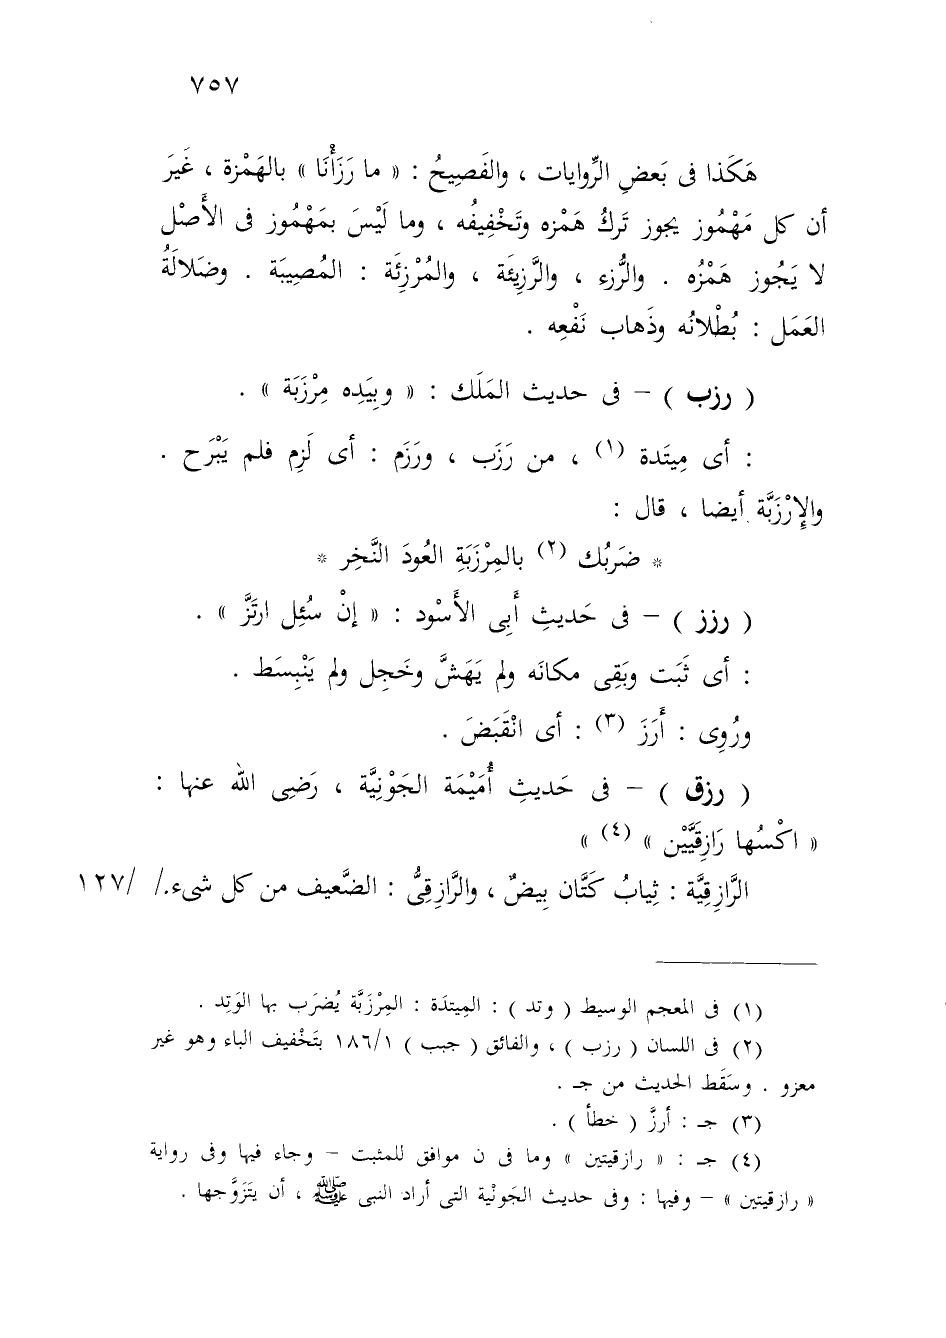 ٧٥٧
هَكَذا فى بَعضِ الرِّوايات ، والفَصِيحُ : « ما رَزَأْنَا » بالهَمْزة ، غَيرَ
أن كل مَهْمُوز يجوز تَركُ هَمْزه وتَخْفِيفُه ، وما لَيْسَ بمَهْمُوز فى الأَصْل
لا يَجُوز هَمْزُه . والرُّزء ، والرَّزِيئَة ، والمُرْزِئَة : المُصِيبَة . وضَلالَةُ
العَمَل : بُطْلانُه وذَهاب نَفْعِه .
( رزب ) – فى حديث المَلَك : « وبِيَدِه مِرْزَبَة » .
: أى مِيتَدة (١) ، من رَزَب ، ورَزَم : أى لَزِم فلم يَبْرح .
والإِرْزَبَّة أيضا ، قال :
* ضَربُك (٢) بالمِرْزَبَةِ العُودَ النَّخِر *
( رزز ) – فى حَديثِ أَبِى الأَسْود : « إنْ سُئِل ارتَزَّ » .
: أى ثَبَت وبَقِى مكانَه ولم يَهَشَّ وخَجِل ولم يَنْبِسَط .
ورُوِى : أَرَزَ (٣) : أى انْقَبَضَ .
( رزق ) – فى حَديثِ أُمَيْمَة الجَوْنِيَّة ، رَضِى الله عنها :
« اكْسُها رَازِقَيَّيْن » (٤) »
الرَّازِقِيَّة : ثِيابُ كَتَّان بِيضٌ ، والرَّازِقِىُّ : الضَّعيف من كل شىء./ /١٢٧
(١) فى المعجم الوسيط ( وتد ) : المِيتدَة : المِرْزَبَّة يُضرَب بها الوَتِد .
(٢) فى اللسان ( رزب ) ، والفائق ( جبب ) ١٨٦/١ بتَخْفيف الباء وهو غير
معزو . وسَقَط الحديث من جـ .
(٣) جـ : أرزَّ ( خطأ ) .
(٤) جـ : « رازقيتين » وما فى ن موافق للمثبت – وجاء فيها وفى رواية
« رازقيتين » – وفيها : وفى حديث الجَونْية التى أراد النبى ﷺ ، أن يتَزَوَّجها .